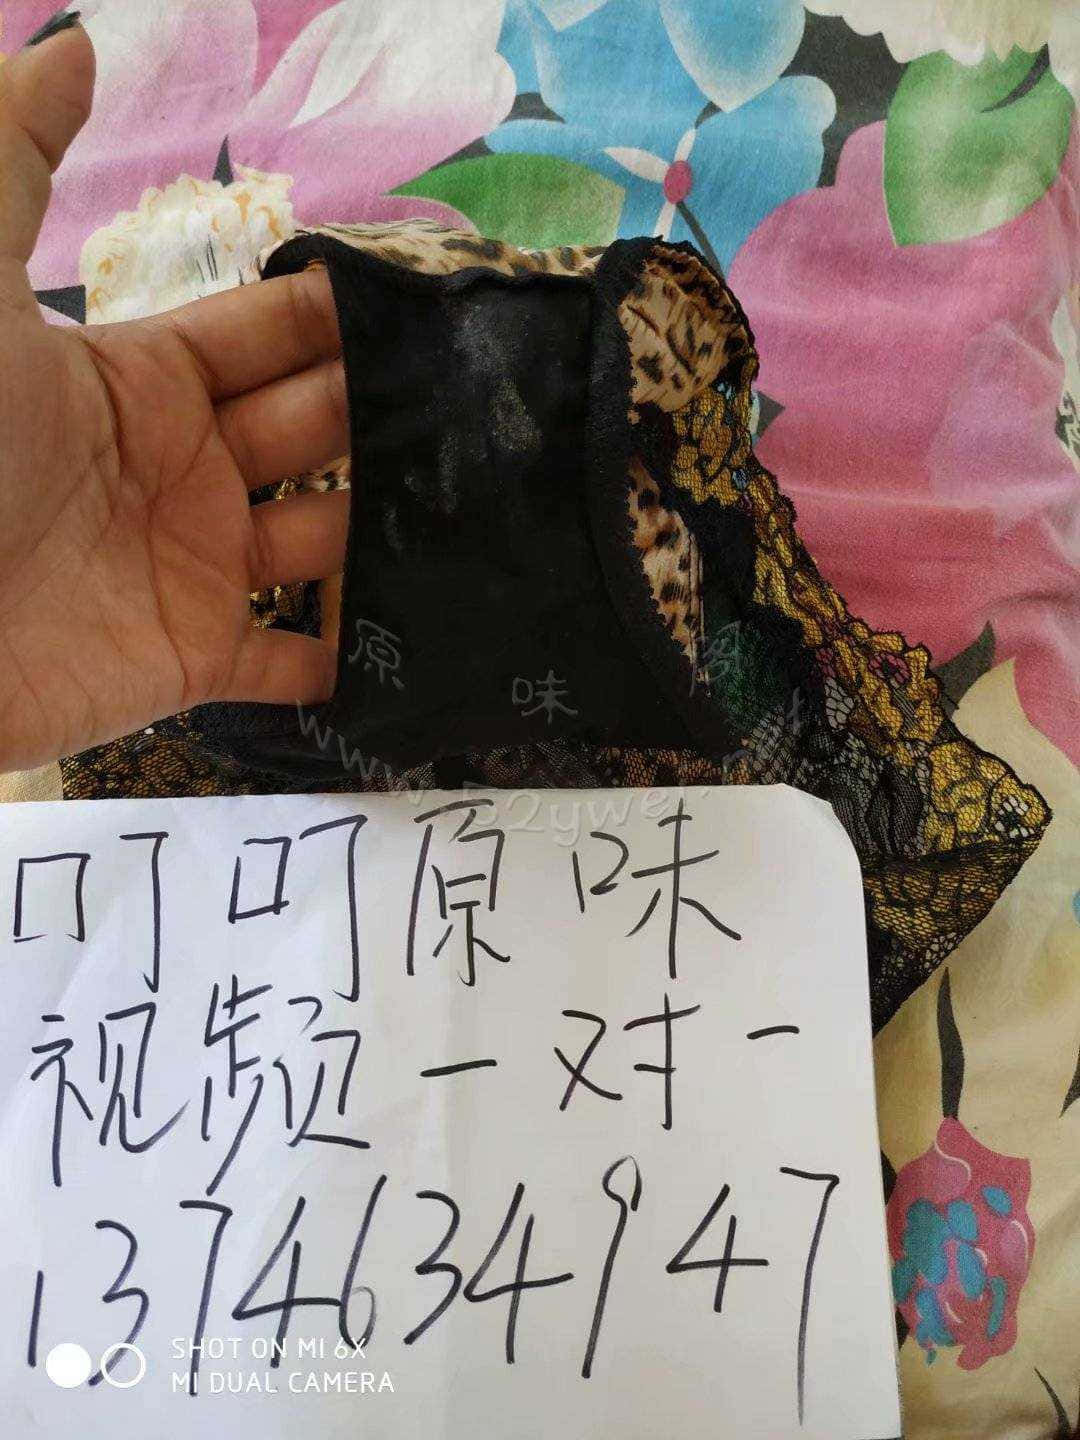 原味阁
www.52ywei.net
叮叮原味
视频一对一
1374634947
SHOT ON MI 6X
MI DUAL CAMERA